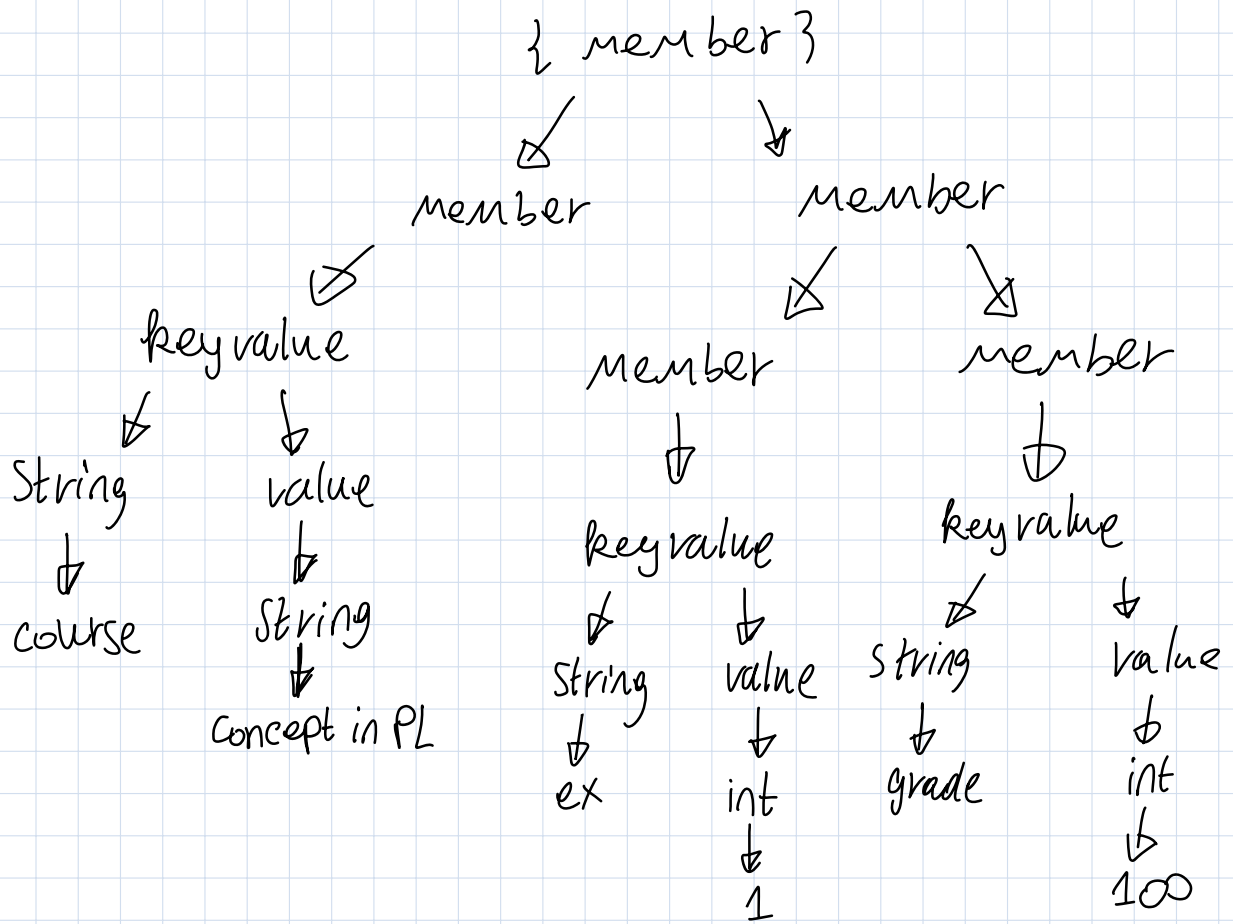 { member }
member member
keyvalue member member
String value keyvalue keyvalue
course String string value string value
concept in PL ex int grade int
1 100